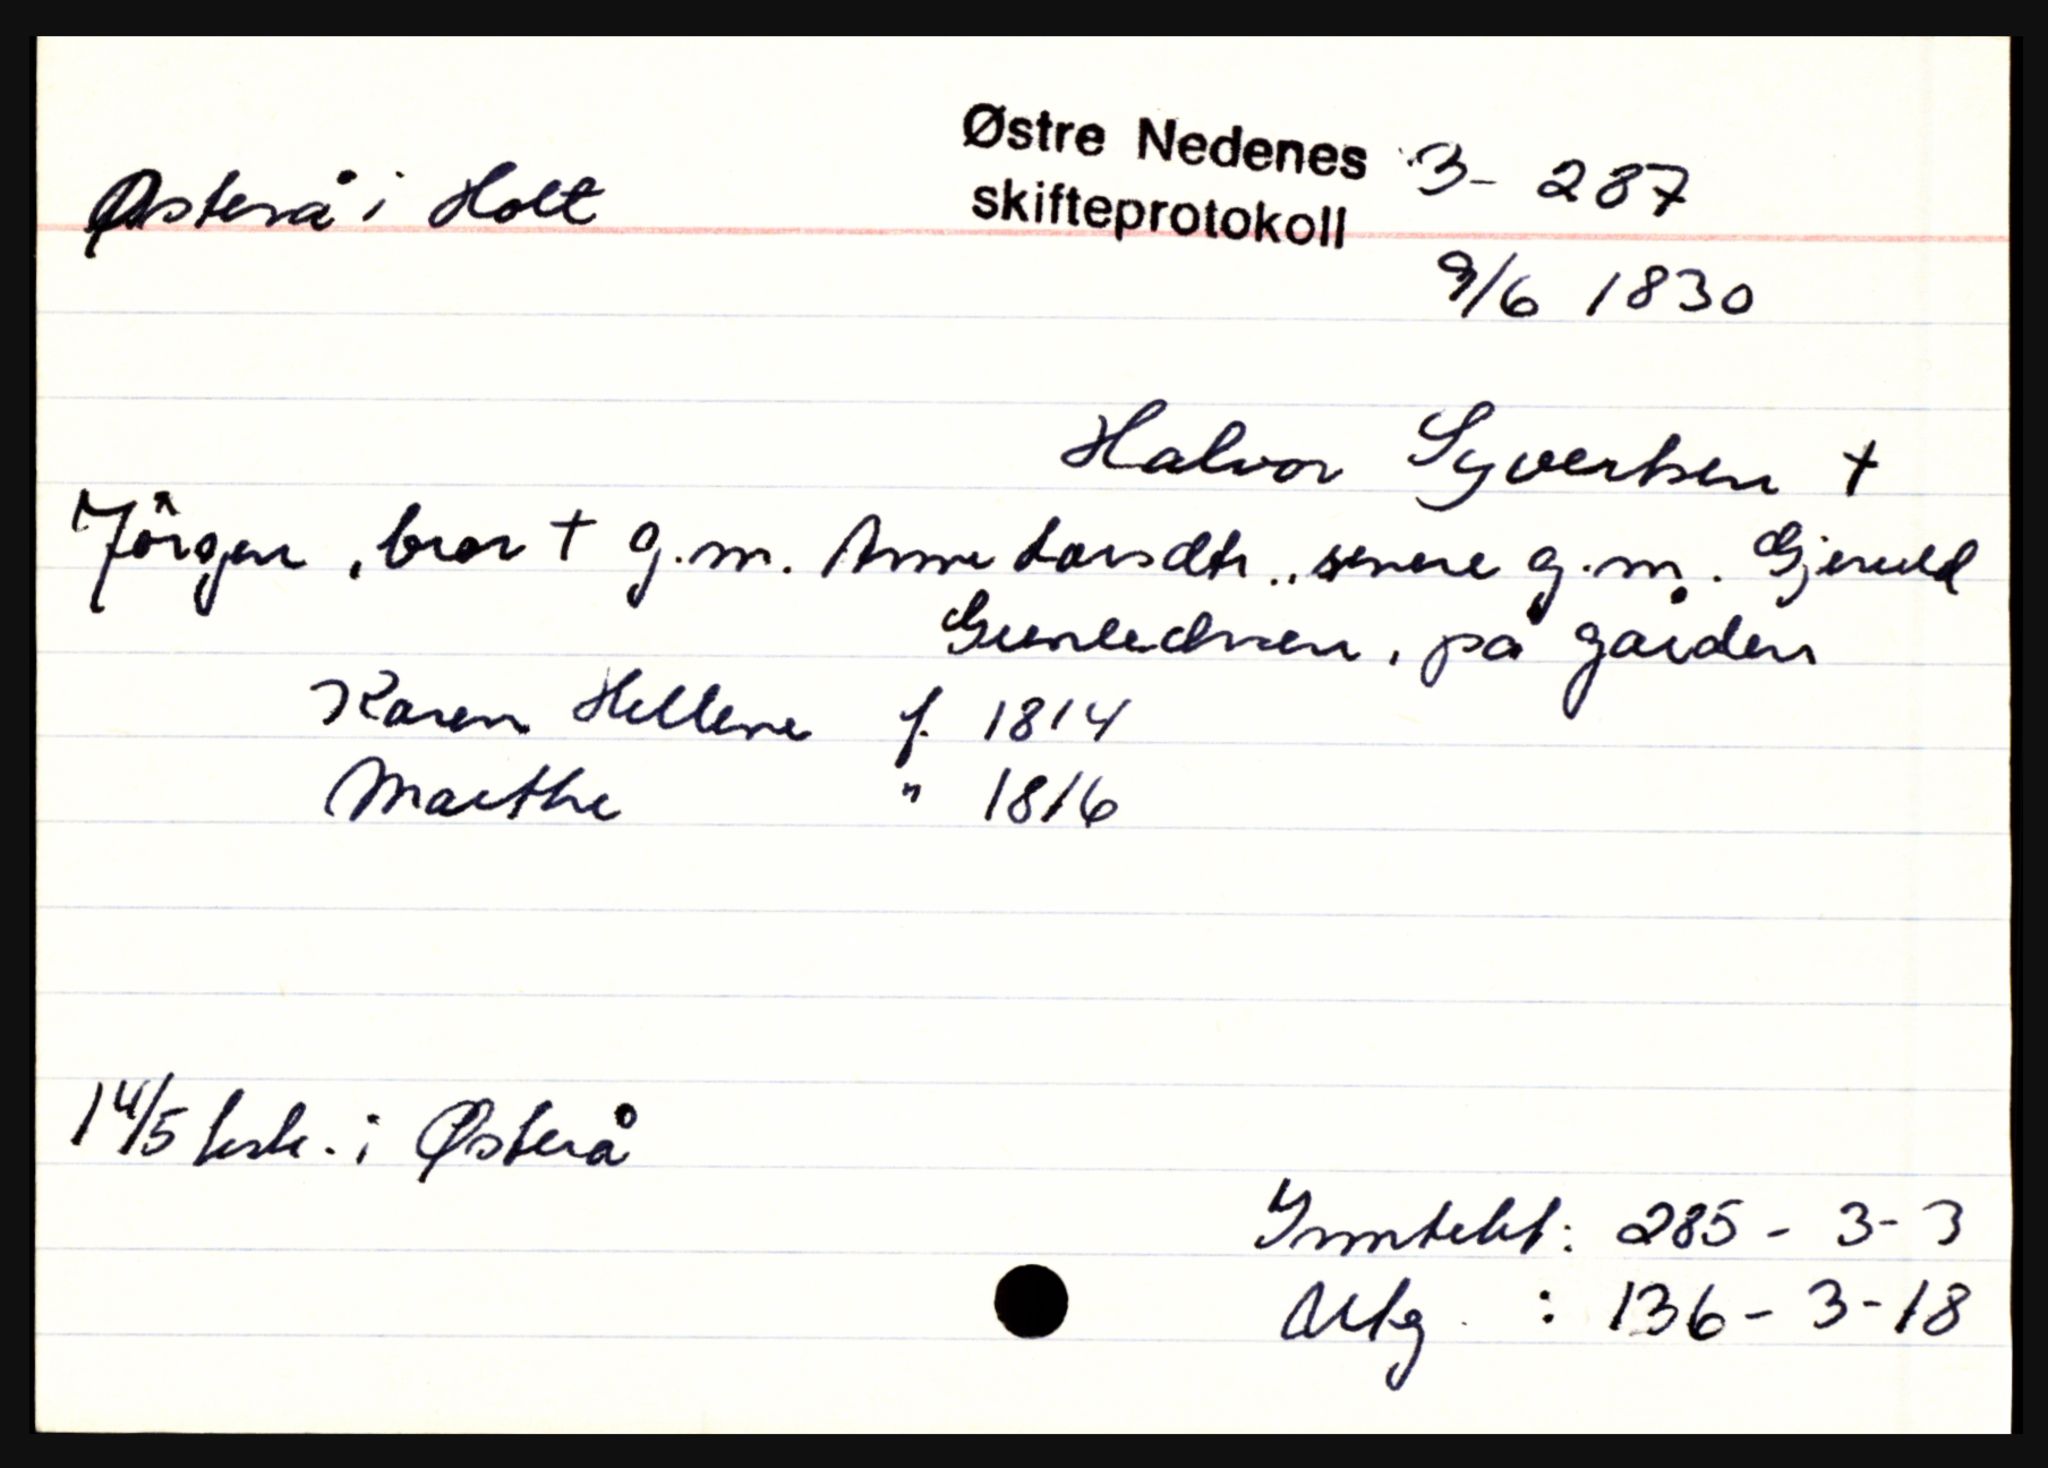 Østerå i Holt
Østre Nedenes 3 - 287
skifteprotokoll
9/6 1830
Halvor Syvertsen †
Jörgen, bror † g.m. Anne Larsdtr., senere g.m. Gjeruld
Gunledsen, på gården
Karen Hellene f. 1814
Marthe " 1816
14/5 test. i Østerå
Inntekt: 285 - 3 - 3
Utg. : 136 - 3 - 18